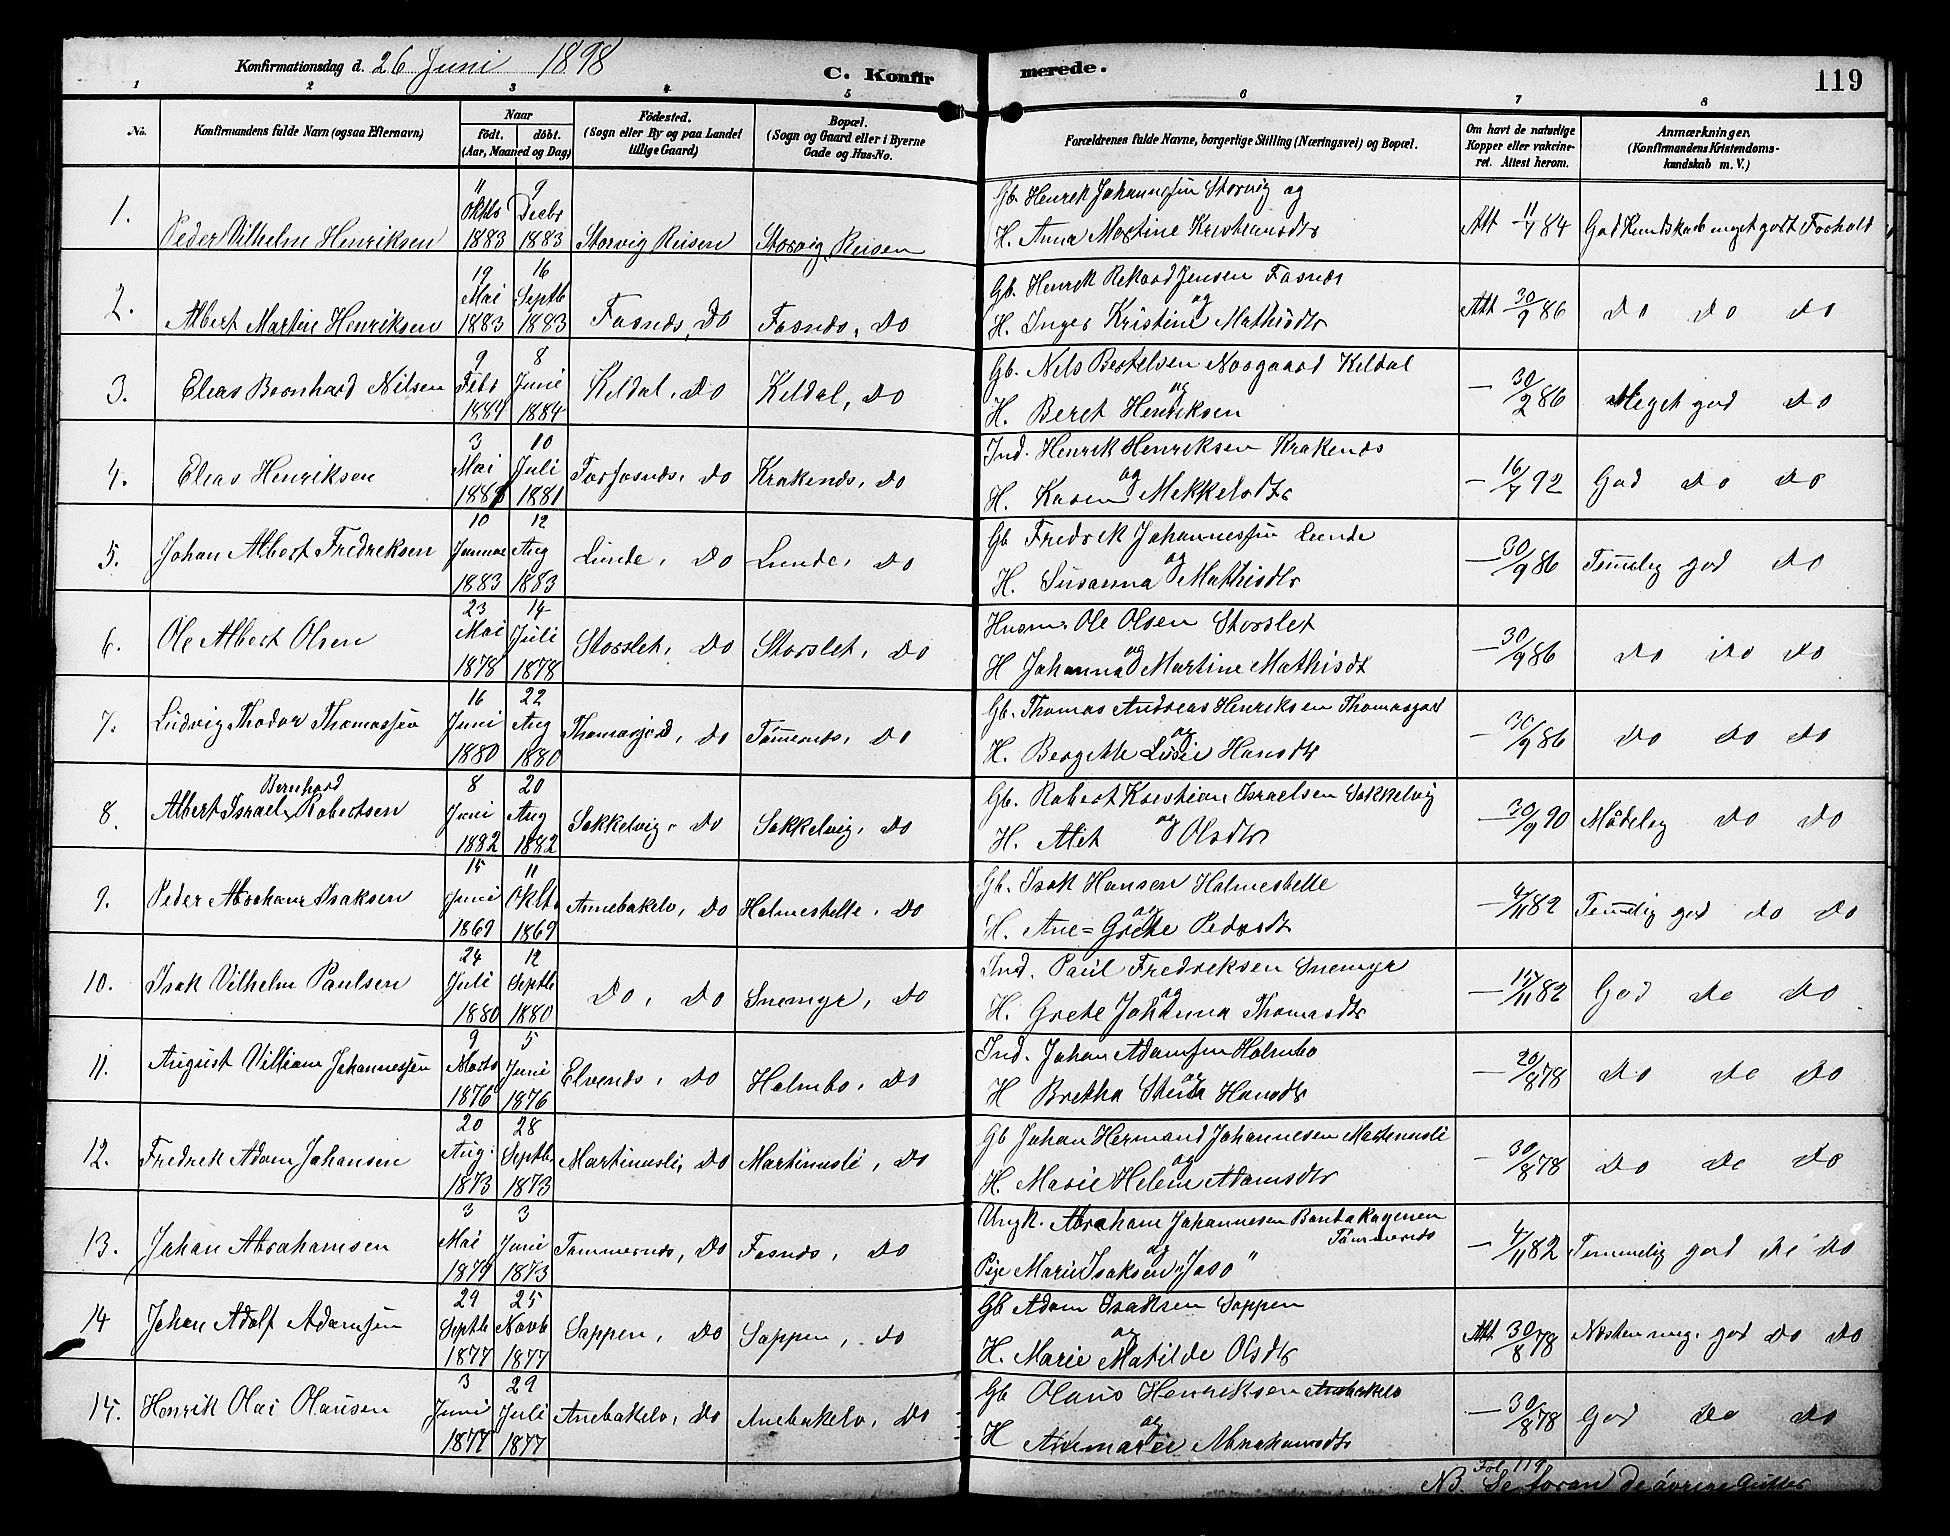 Konfirmationsdag d. 26 Juni 1898
C. Konfirmerede.
119
1 2 3 4 5 6 7 8
No.
Konfirmandens fulde Navn (ogsaa Efternavn)
Naar
født. døbt.
(Aar, Maaned og Dag)
Fødested.
(Sogn eller By og paa Landet
tillige Gaard)
Bopæl.
(Sogn og Gaard eller i Byerne
Gade og Hus-No.
Forældrenes fulde Navne, borgerlige Stilling (Næringsvei) og Bopæl.
Om havt de naturlige
Kopper eller vakcine-
ret. Attest herom.
Anmærkninger.
(Konfirmandens Kristendoms-
kundskab m. V.)
1. Peder Vilhelm Henriksen 11 Oktb 1883 9 Decbr 1883 Storvig Reisen Storvig Reisen
Gb. Henrik Johannessen Storvig og
H. Anna Martine Kristiansdtr
Att 11/7 84 God Kundskab meget godt Forhold
2. Albert Martin Henriksen 19 Mai 1883 16 Septb 1883 Fosnæs, Do Fosnæs, Do
Gb. Henrik Rekard Jensen Fosnæs
og
H. Inger Kristine Mathisdtr
Att 30/9 86 Do Do Do
3. Elias Bernhard Nilsen 9 Febr 1884 8 Juni 1884 Keldal, Do Keldal, Do
Gb. Nels Bertelsen Norgaard Keldal
og
H. Beret Henriksen
— 30/2 86 Meget god Do
4. Elias Henriksen 3 Mai 1881 10 Juli 1881 Forfosnæs, Do Krakenæs, Do
Ind. Henrik Henriksen Krakenæs
og
H. Karen Mekkelsdtr
— 16/7 92 God Do Do
5. Johan Albert Fredreksen 10 Januar 1883 12 Aug 1883 Lunde, Do Lunde, Do
Gb Fredrek Johannessen Lunde
og
H. Susanna Mathisdtr
— 30/9 86 Temelig god Do
6. Ole Albert Olsen 23 Mai 1878 14 Juli 1878 Storslet, Do Storslet, Do
Husm. Ole Olsen Storslet
og
H Johanna Martine Mathisdt
— 30/9 86 Do Do Do
7. Ludvig Theodor Thomassen 16 Juni 1880 22 Aug 1880 Thomasjord, Do Tømernæs, Do
Gb. Thomas Andreas Henriksen Thomasjord
og
H. Bergitte Lusie Hansdtr
— 30/9 86 Do Do Do
Bernhard
8. Albert Israel Robertsen 8 Juni 1882 20 Aug 1882 Sokkelvig, Do Sokkelvig, Do
Gb. Robert Kristian Israelsen Sokkelvig
og
H. Alet Olsdtr
— 30/9 90 Mådelig Do Do
9. Peder Abraham Isaksen 15 Juni 1869 11 Oktb. 1869 Annebakelv, Do Holmeshelle, Do
Gb. Isak Hansen Holmeshelle
og
H. Ane=Grete Pedersdtr
— 4/11 82 Temelig god Do Do
10. Isak Vilhelm Paulsen 24 Juli 1880 12 Septb 1880 Do, Do Snemyr, Do
Ind. Paul Fredreksen Snemyr
og
H. Grete Johanna Thomasdtr
— 15/11 82 God Do Do
11. August Villiam Johannessen 9 Marts 1876 5 Juni 1876 Elvenæs, Do Holmbo, Do
Ind. Johan Adamsen Holmbo
og
H Bretha Stina Hansdtr
— 20/8 78 Do Do Do
12. Fredrek Adam Johansen 20 Aug. 1873 28 Septb. 1873 Martinusli, Do Martinusli, Do
Gb Johan Hermand Johannesen Martinusli
og
H. Marie Helene Adamsdtr
— 30/8 78 Do Do Do
13. Johan Abrahamsen 3 Mai 1879 3 Juni 1873 Tømmernæs, Do Fosnæs, Do
Ungk. Abraham Johannesen Bantakagenen
Tømmernæs
og
Pige Marie Isaksen
— 4/11 82 Temmelig god Do Do
14 Johan Adolf Adamsen 29 Septb 1877 25 Novb 1877 Sappen, Do Sappen, Do
Gb Adam Isaksen Sappen
og
H. Marie Matilde Olsdtr
Att 30/8 78 Næsten meg. god Do Do
15. Henrik Olai Olausen 3 Juni 1877 29 Juli 1877 Anebakelv, Do Anebakelv, Do
Gb Olaus Henriksen Anebakelv
og
H Annmarie Abrahamsdtr
— 30/8 78 God Do Do
Fol. 119
NB. Se foran de øvrige Gutter